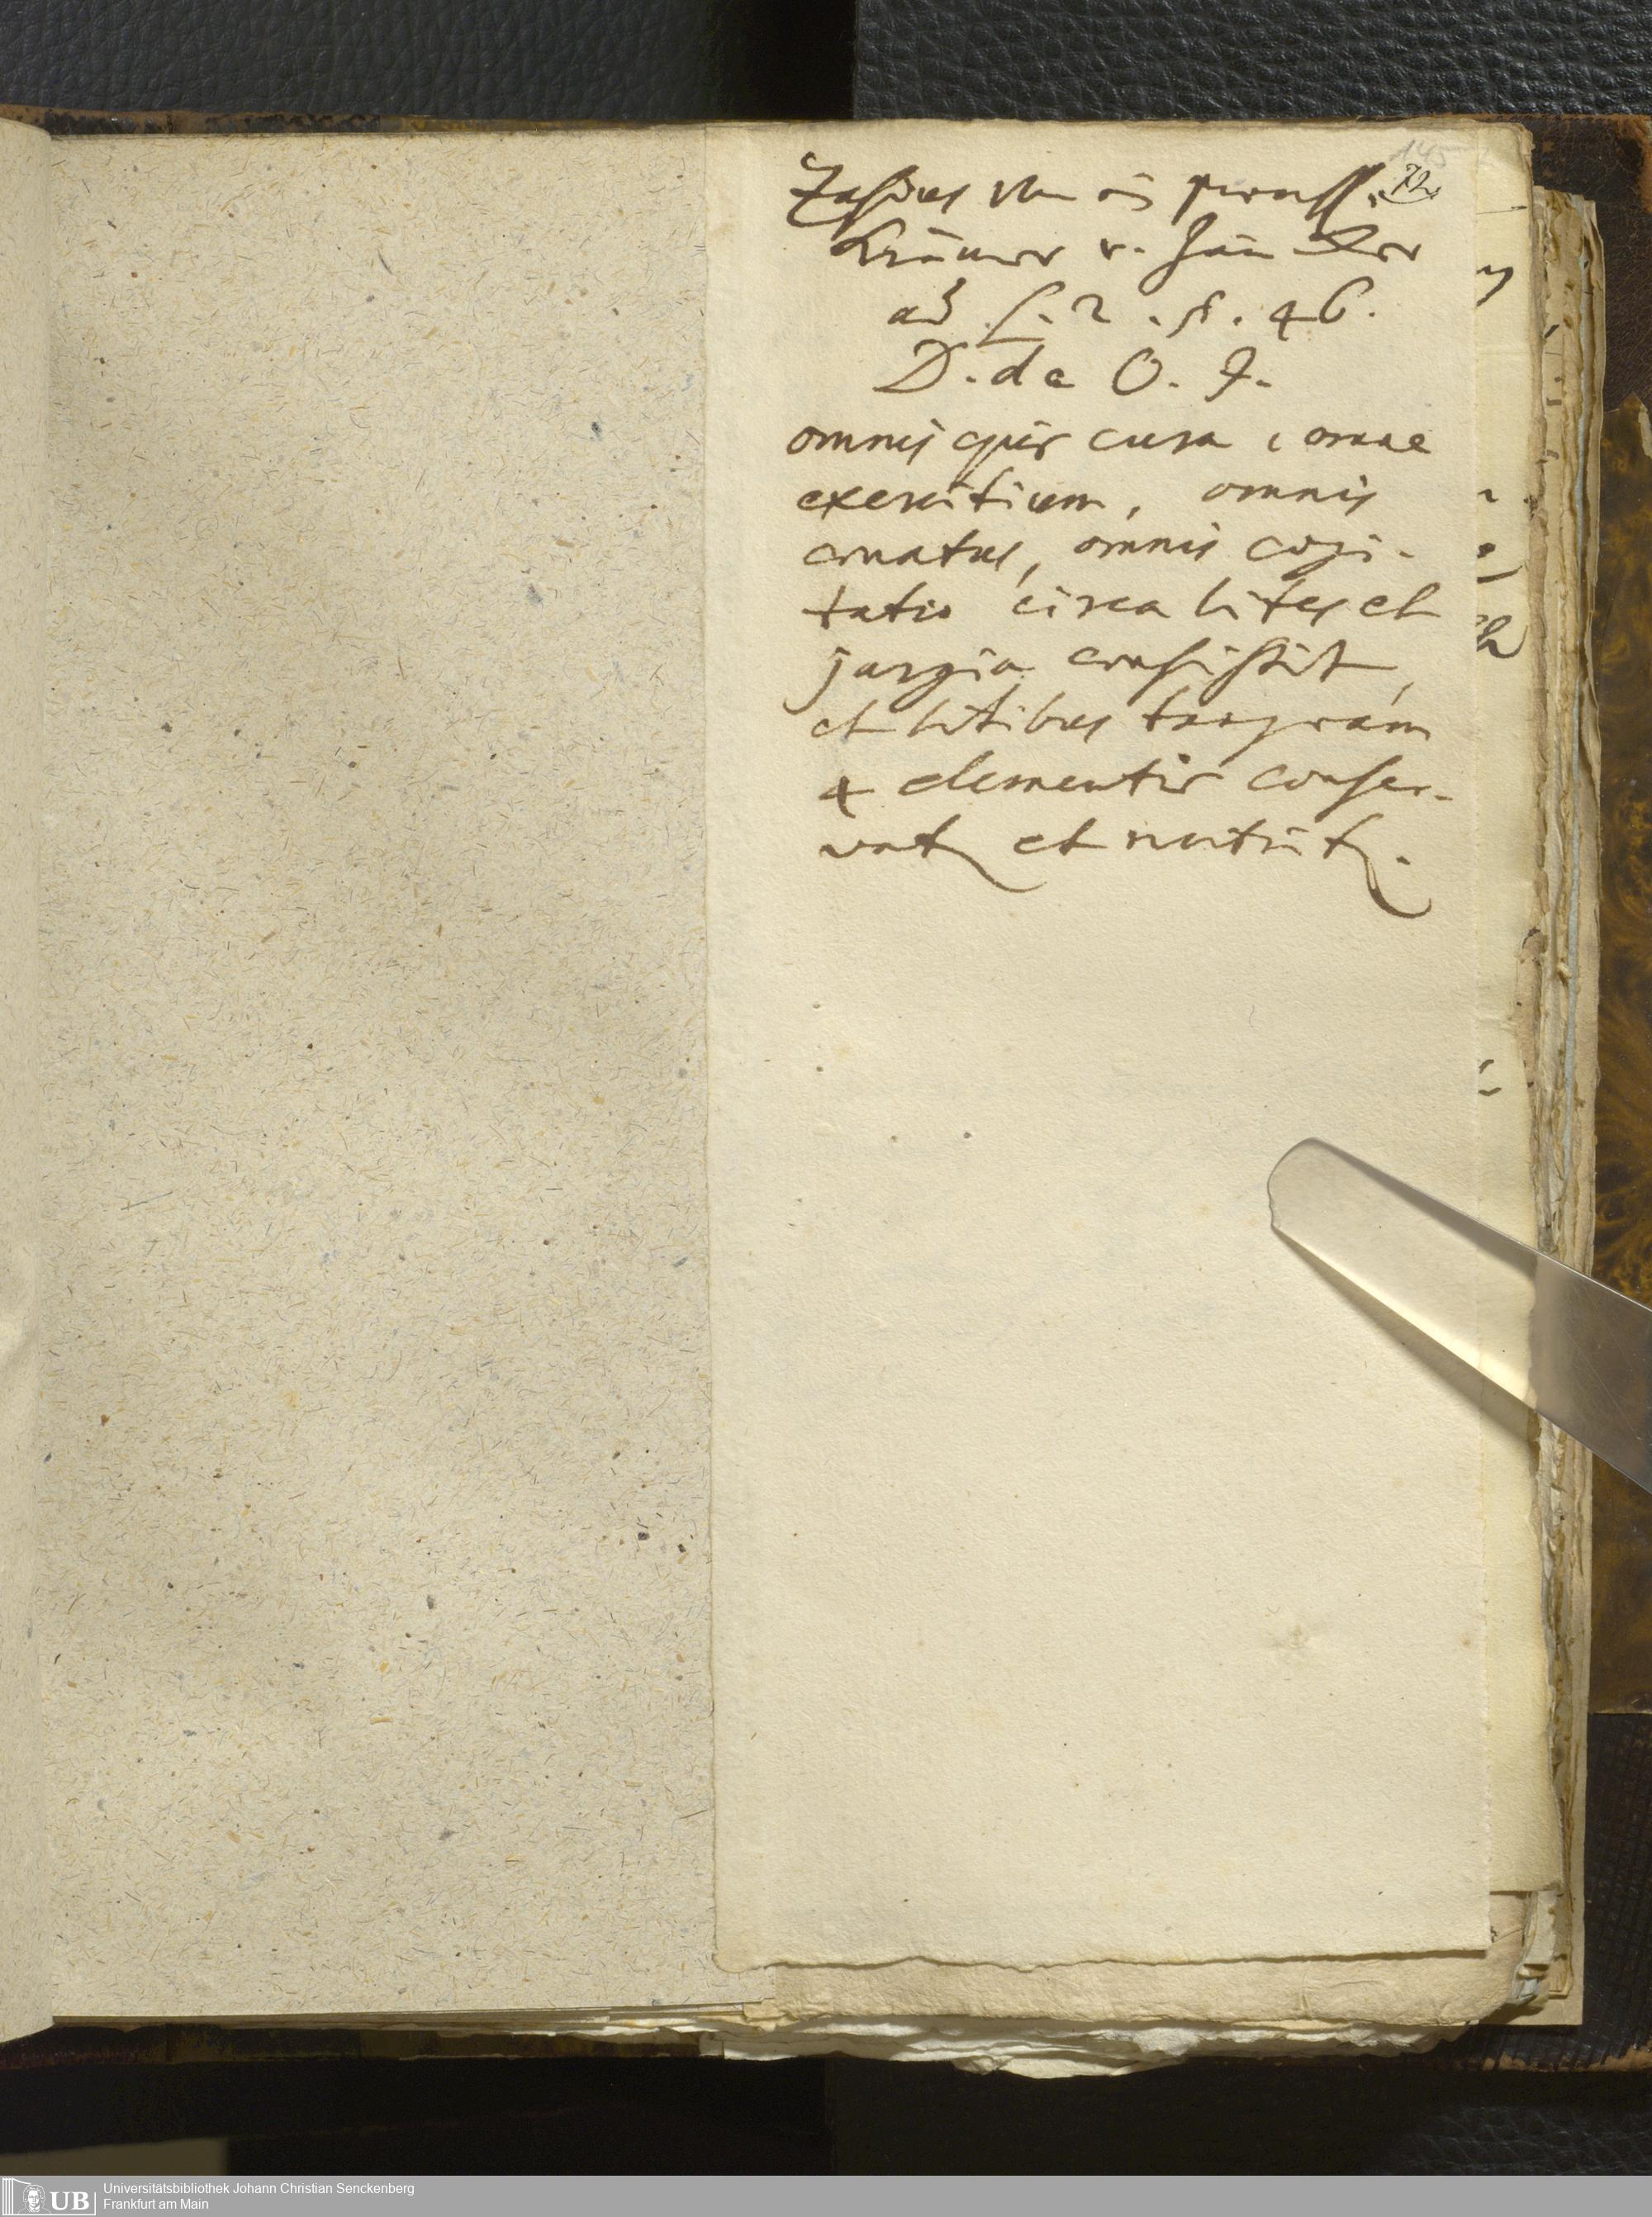 145
72.
Zasius von
Krämer v. Händler
ad L. 2. §. 46.
D. de O. J.
omnis quis cura, omne
exercitium, omnis
conatus, omnis cogi-
tatio circa lites et
jurgia consistit,
et litibus tanquam
4 elementis conser-
vat et nutrit.
UB
Universitätsbibliothek Johann Christian Senckenberg
Frankfurt am Main